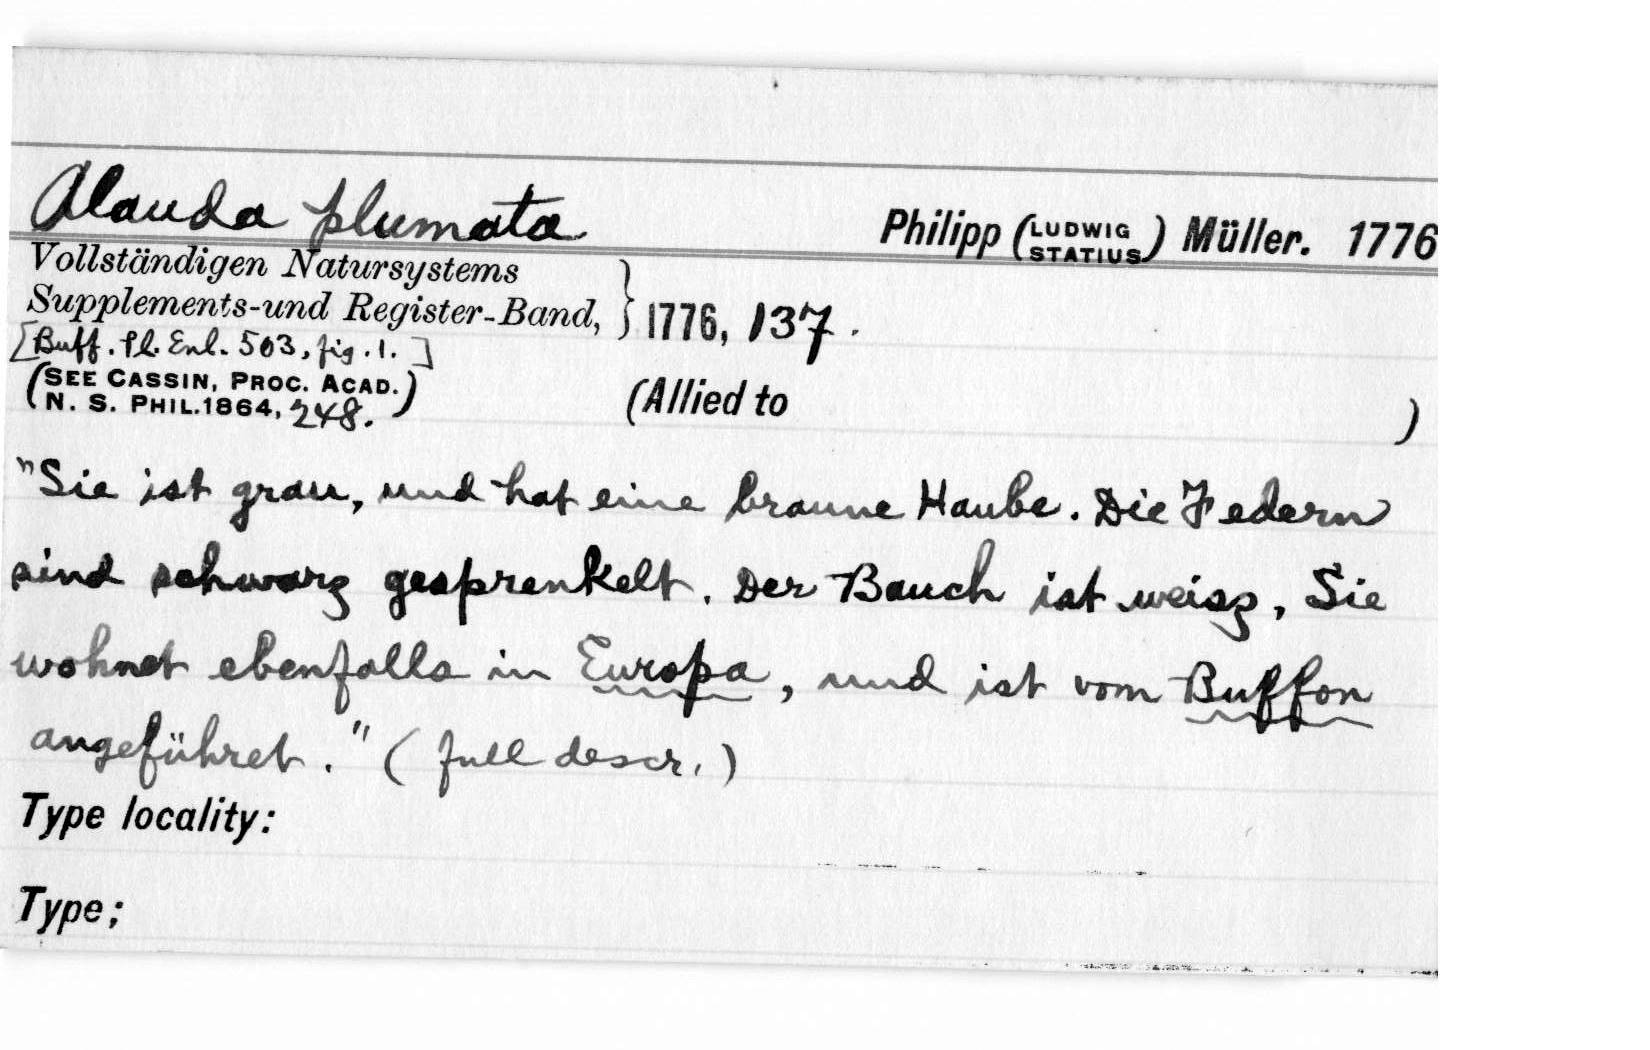 Alauda plumata Philipp (LUDWIG STATIUS) Müller. 1776
Vollständigen Natursystems
Supplements-und Register-Band, } 1776, 137.
[Buff. Pl. Enl. 503, fig. 1.]
(SEE CASSIN, PROC. ACAD.
N. S. PHIL. 1864, 248.) (Allied to )
"Sie ist grau, und hat eine braune Haube. Die Federn
sind schwarz gesprenkelt. Der Bauch ist weisz, Sie
wohnet ebenfalls in Europa, und ist vom Buffon
angeführet." (full descr.)
Type locality:
Type;